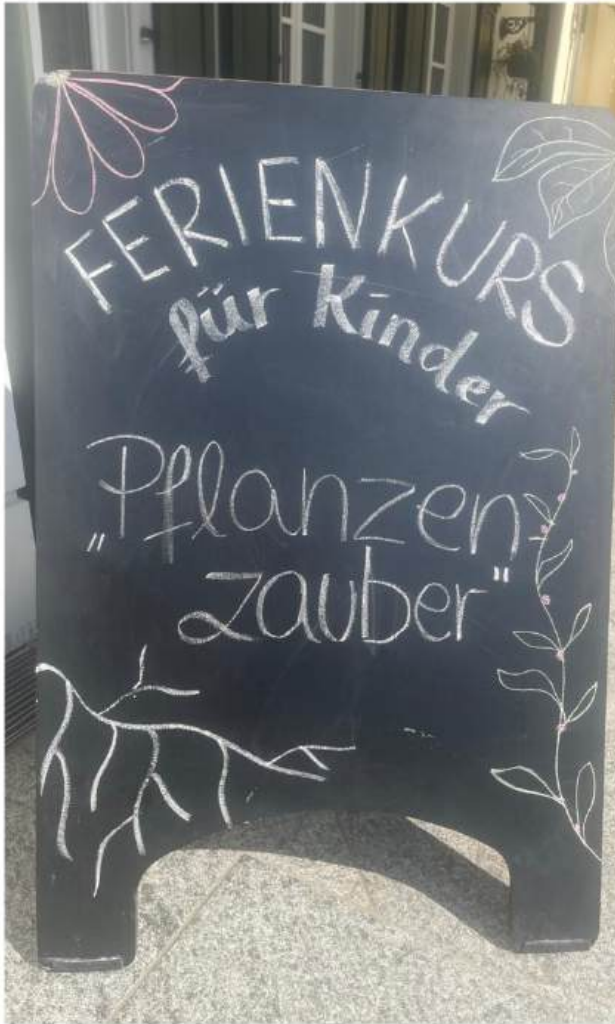 FERIENKURS
für Kinder
„Pflanzen-
zauber"